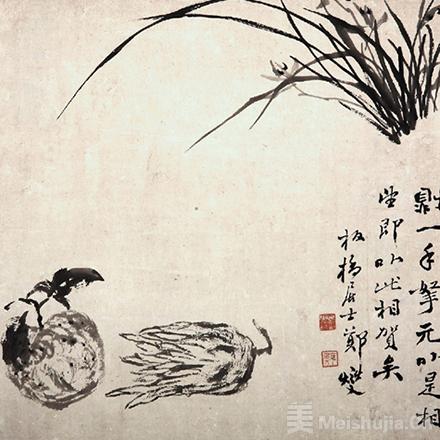 一手拏元是相
望即以此相賀矣
板橋居士鄭燮
美 Meishujia.Cn